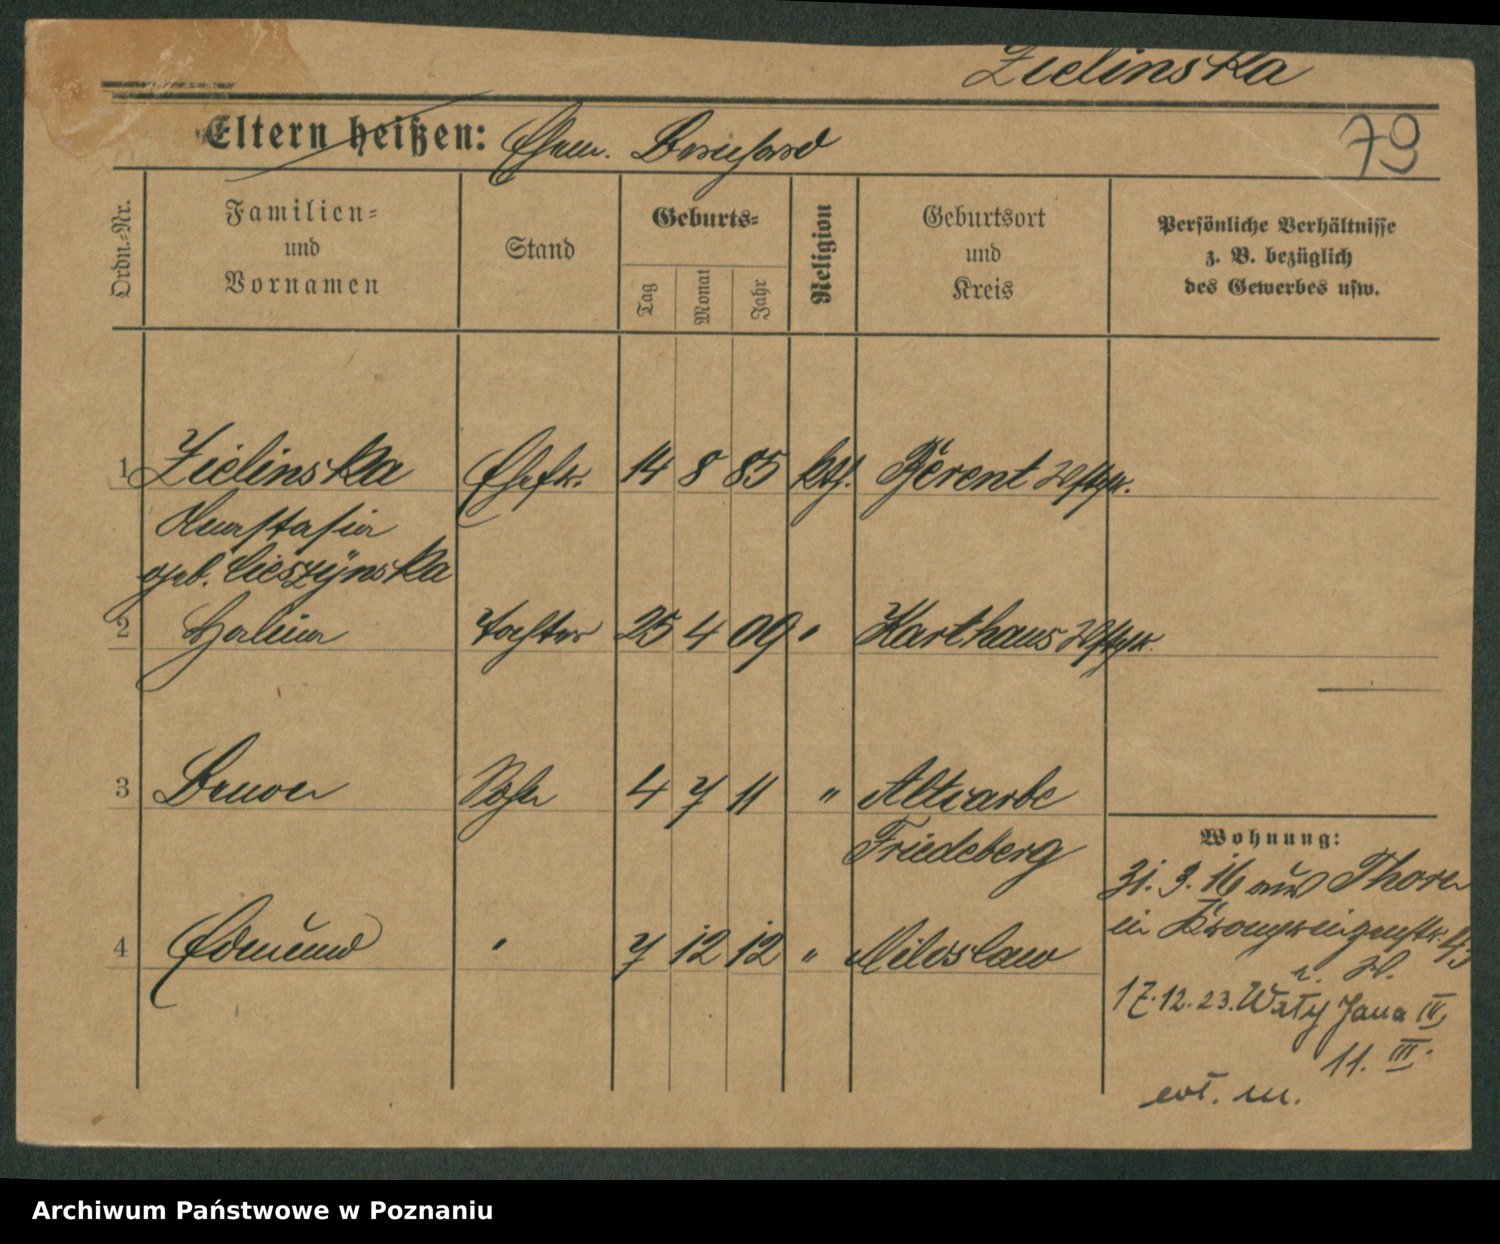 Zielinska
Eltern heißen: Ehem. Bernhard
79
Ordn.-Nr.
Familien-
und
Vornamen
Stand
Geburts-
Tag
Monat
Jahr
Religion
Geburtsort
und
Kreis
Persönliche Verhältnisse
z. B. bezüglich
des Gewerbes usw.
1 Zielinska Ehefr. 14 8 85 kth. Berent Westpr.
Anastasia
geb. Cieszÿnska
2 Halina Tochter 25 4 09 " Karthaus Westpr.
3 Bruno Sohn 4 7 11 " Altkarbe
Friedeberg
4 Edmund " 7 12 12 " Miloslaw
Wohnung:
31. 3. 16 aus Thorn
in Kronprinzenstr. 43
17.12.23. Wały Jana III
11. III.